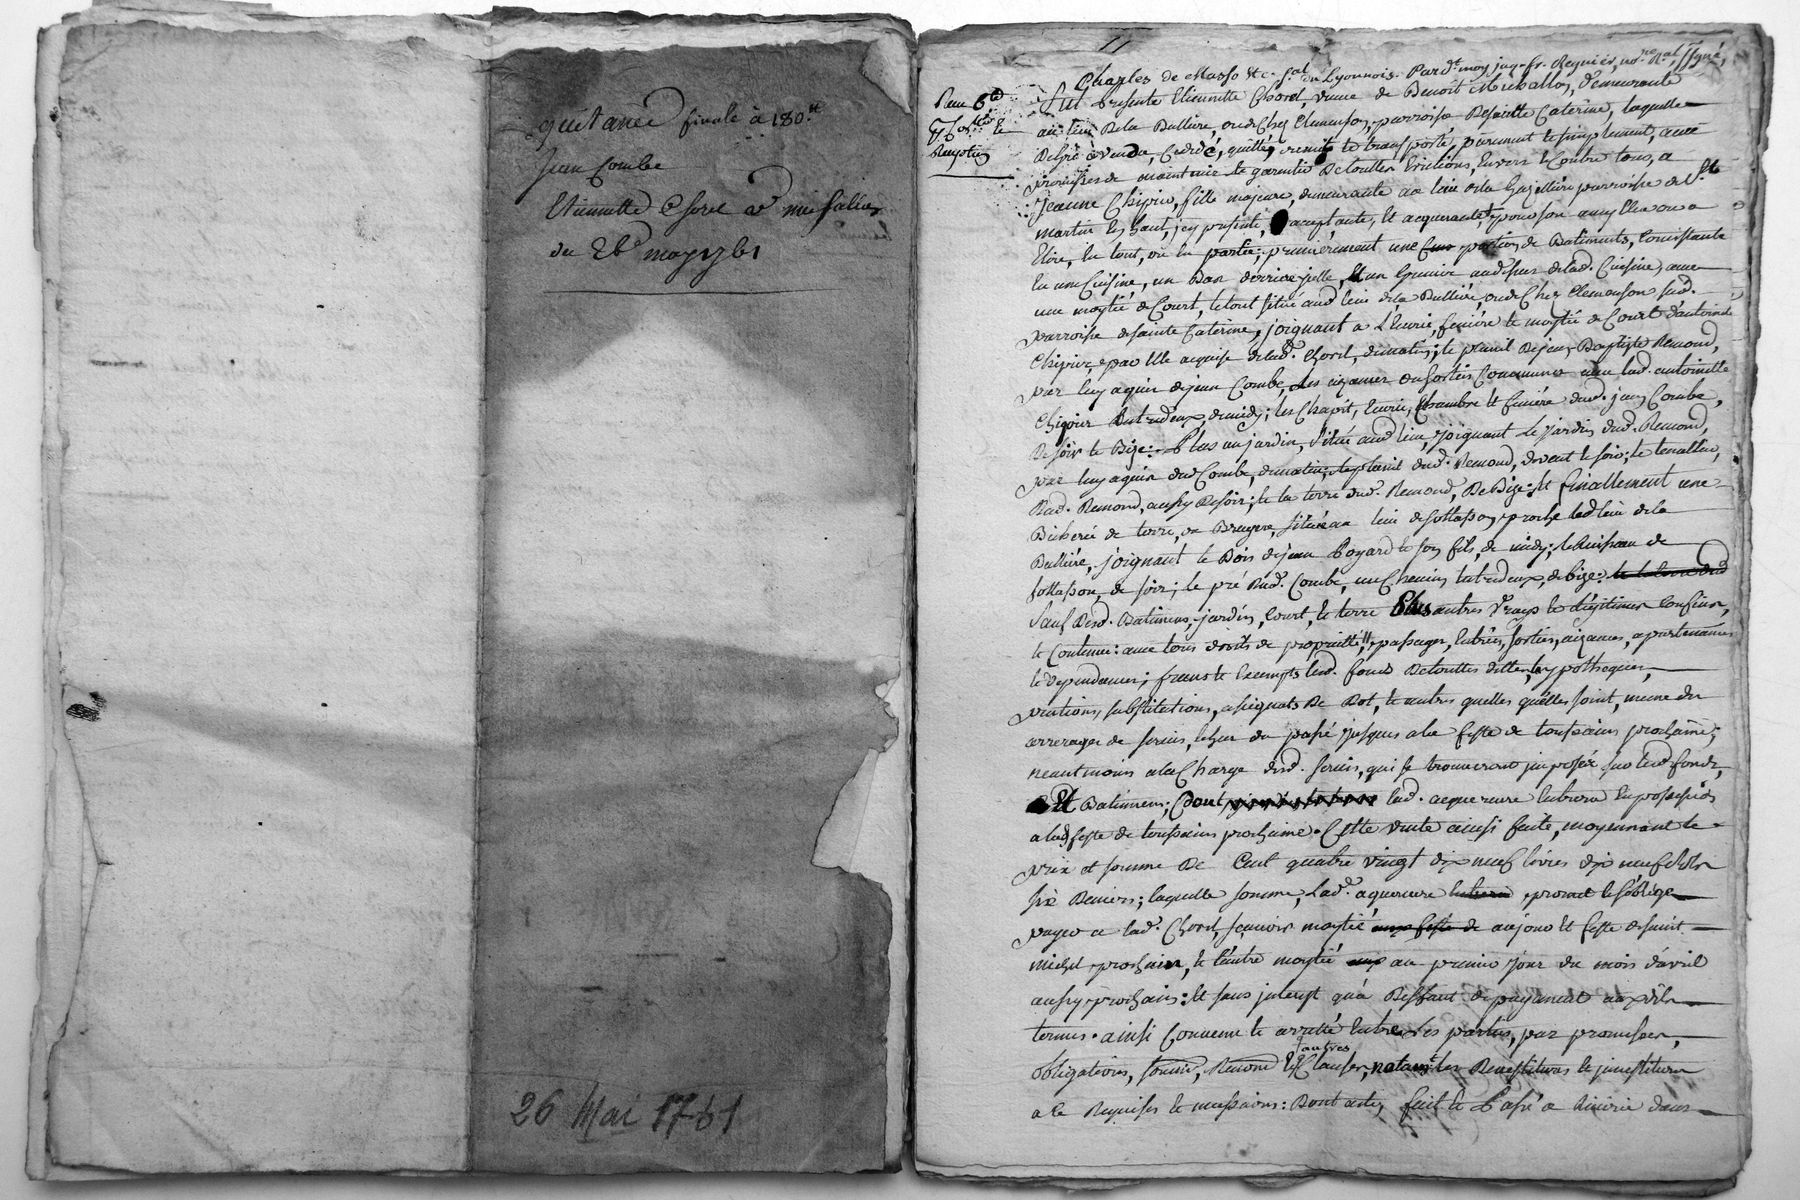 quittance finale à 180 ₶
Jean Combe
Etiennette Chorel ve Michallon
du 26e may 1761
26 Mai 1761
Charles de Masso &c. sal. du Lyonnois. Pard.t moy jaq. fr. Regnier, no.re R.al, ssigné,
fut presente Etiennette Chorel, veuve de Benoit Michallon, demeurante
au lieu de la Bulliere, ou de Chez Clemenson, parroisse de sainte Caterine, laquelle
de gré a vendu, cedé, quitté, remis et transporté, purement et simplement, avec
promesses de maintenir et garentir de touttes evictions, envers et contre tous, a
Jeanne Chipier, fille majeure, demeurante au lieu de la parroisse de St
martin en haut, icy presente, acceptante, et acquerante, pour son amy elu ou a
Elire, en tout, ou en partie; premierement une portion de Batiments, consistante
en une Cuisine, un Bas derrier jcelle, et un Grenier audessus de lad. Cuisine, avec
une moytié de Court, le tout situé aud. lieu de la Bulliere, ou de Chez Clemenson sud.
parroisse de sainte Caterine, joignant a l'Ecurie, feniére et moytié de Court d'antoinette
Chipier, par elle acquise de lad. Chorel, de matin; le de jean Baptiste Remond,
par luy aquis de jean Combe, les aizances et sorties Communes avec lad. antoinette
Chipier entredeux, de midy; les Chapit, Ecurie, Chambre et feniére dud. jean Combe,
de soir et Bize: Plus un jardin, situé aud. lieu, joignant le jardin dud. Remond,
par luy aquis dud. Combe, de matin; dud. Remond, devent et soir; le
dud. Remond, aussy de soir; et la terre dud. Remond, de Bize; et finallement une
Bicherée de terre, ou Bruyere, située au lieu de sottasson, proche led. lieu de la
Bulliére, joignant le Bois de jean Poyard et son fils, de midy; le Ruisseau de
sottasson, de soir; le pré dud. Combe, un Chemin entredeux, de bize:
sauf desd. Batimens, jardin, Court, et terre Plus autres vrays et légitimes Confins,
et Contenue: avec tous droits de proprietté, passages, entrées, sorties, aizances, apartenances
et dependances; francs et exempts lesd. fonds de touttes dettes, hypotheques,
pentions, substitutions, assignats de Dot, et autres quelles quelles soint, meme des
arrerages de servis, echus du passé jusques a la feste de toussains prochaine;
neantmoins a la Charge desd. servis, qui se trouveront imposés sur lesd. fonds,
Et Batimens; dont lad. acquereure entrera en possession
a lad. feste de toussains prochaine. Cette vente ainsi faite, moyennant le
prix et somme de Cent quatre vingt dix neuf livres dix neuf sols
six Deniers; laquelle somme, lad. aquereure promet et s'oblige
payer a lad. Chorel, sçavoir moytié au jour et feste de saint
michel prochain, et l'autre moytié au premier jour du mois d'avril
aussy prochain: et sans interest qu'a deffaut de payement auxdits
termes. ainsi Convenu et arreté entre les parties, par promesses,
obligations, soumis., Renonc. et autres Clauses, notamt. les Devestitures et jnvestitures
a ce Requises et necessaires: Dont acte, fait et Passé a Riverie dans